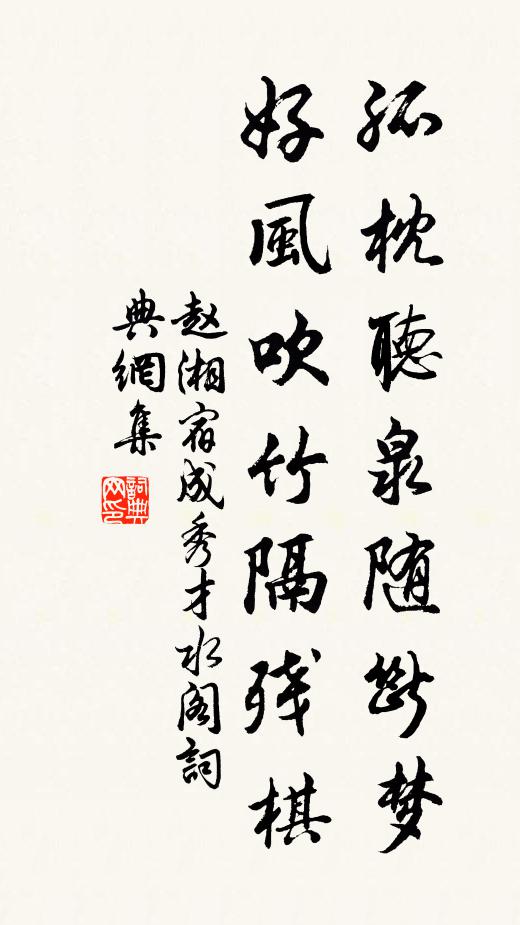 孤枕聽泉随斷梦
好風吹竹隔残棋
赵湘宿成秀才水阁詞
典網集
詞典网印